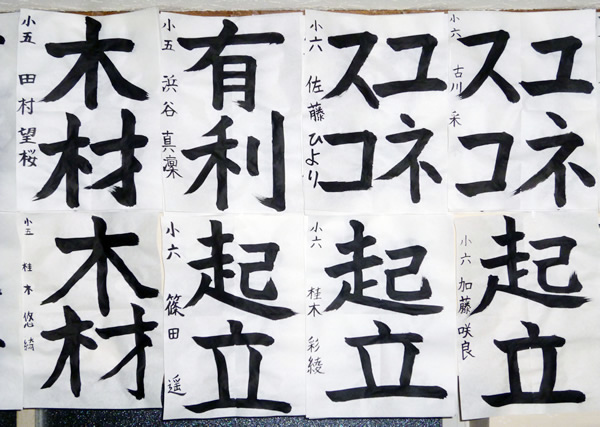 木材
小五 田村望桜
有利
小五 浜谷真凜
ユネスコ
小六 佐藤ひより
ユネスコ
小六 古川采
木材
小五 桂木悠綺
起立
小六 篠田遥
起立
小六 桂木彩綾
起立
小六 加藤咲良